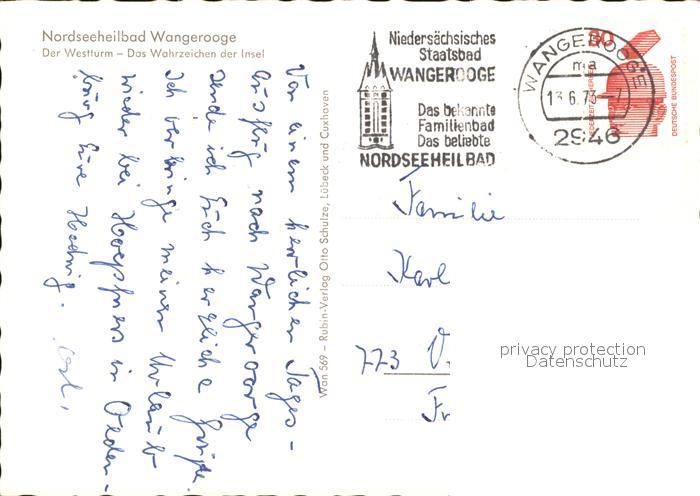 Nordseeheilbad Wangerooge
Der Westturm – Das Wahrzeichen der Insel
Von einem herrlichen Tages-
ausflug nach Wangerooge
sende ich Euch herzliche Grüße.
Ich verbringe meinen Urlaub
wieder bei in Olden-
burg Eure Hedwig.
Wan 569 – Rubin-Verlag Otto Schulze, Lübeck und Cuxhaven
Niedersächsisches
Staatsbad
WANGEROOGE
Das bekannte
Familienbad
Das beliebte
NORDSEEHEILBAD
WANGEROOGE
ma
13.6.73
2946
DEUTSCHE BUNDESPOST
Familie
Karl
773 V
Fr
privacy protection
Datenschutz